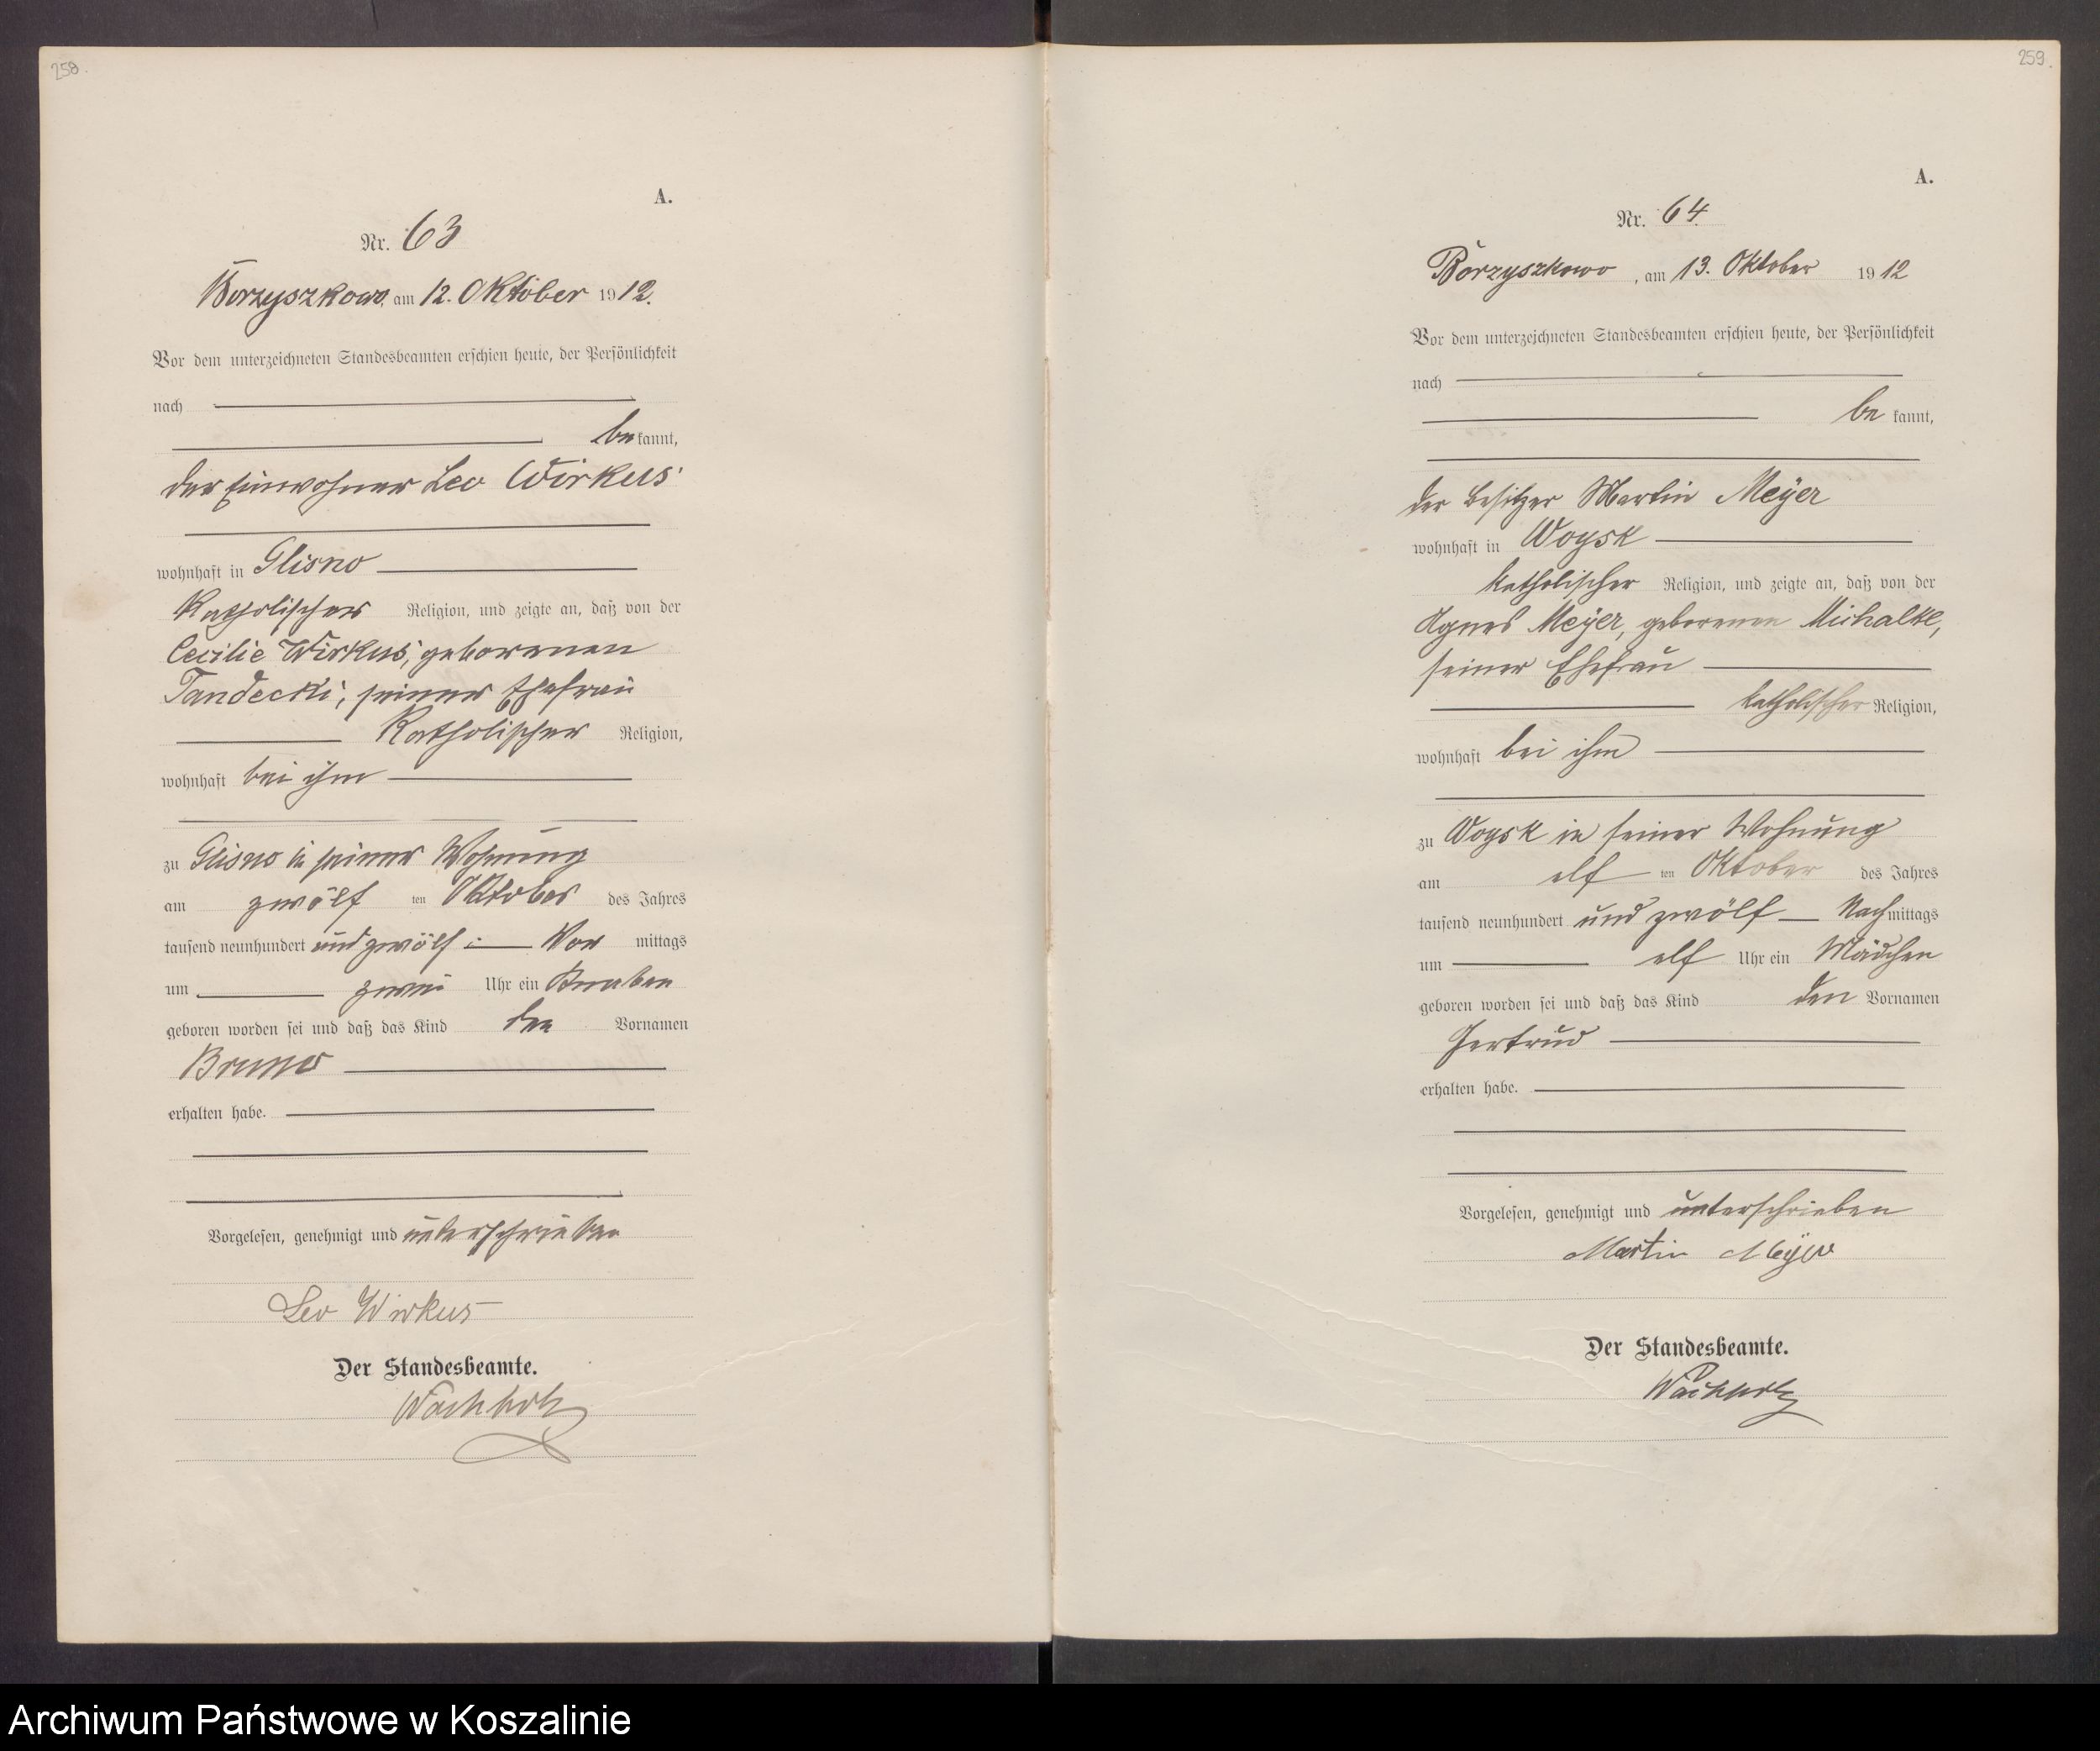 258.
A.
Nr. 63
Borzyszkowo, am 12. Oktober 1912.
Vor dem unterzeichneten Standesbeamten erschien heute, der Persönlichkeit
nach
bekannt,
der Einwohner Leo Wirkus
wohnhaft in Glisno
katholischer Religion, und zeigte an, daß von der
Cecilie Wirkus, geborenen
Tandecki, seiner Ehefrau
katholischer Religion,
wohnhaft bei ihm
zu Glisno in seiner Wohnung
am zwölf ten Oktober des Jahres
tausend neunhundert und zwölf Vor mittags
um zwei Uhr ein Knaben
geboren worden sei und daß das Kind den Vornamen
Bruno
erhalten habe.
Vorgelesen, genehmigt und unterschrieben
Leo Wirkus
Der Standesbeamte.
Wachholz
259.
A.
Nr. 64.
Borzyszkowo, am 13. Oktober 1912
Vor dem unterzeichneten Standesbeamten erschien heute, der Persönlichkeit
nach
be kannt,
der Besitzer Martin Meyer
wohnhaft in Woysk
katholischer Religion, und zeigte an, daß von der
Agnes Meyer, geborenen Michalke,
seiner Ehefrau
katholischer Religion,
wohnhaft bei ihm
zu Woysk in seiner Wohnung
am elf ten Oktober des Jahres
tausend neunhundert und zwölf Nachmittags
um elf Uhr ein Mädchen
geboren worden sei und daß das Kind den Vornamen
Gertrud
erhalten habe.
Vorgelesen, genehmigt und unterschrieben
Martin Meyer
Der Standesbeamte.
Wachholz
Archiwum Państwowe w Koszalinie